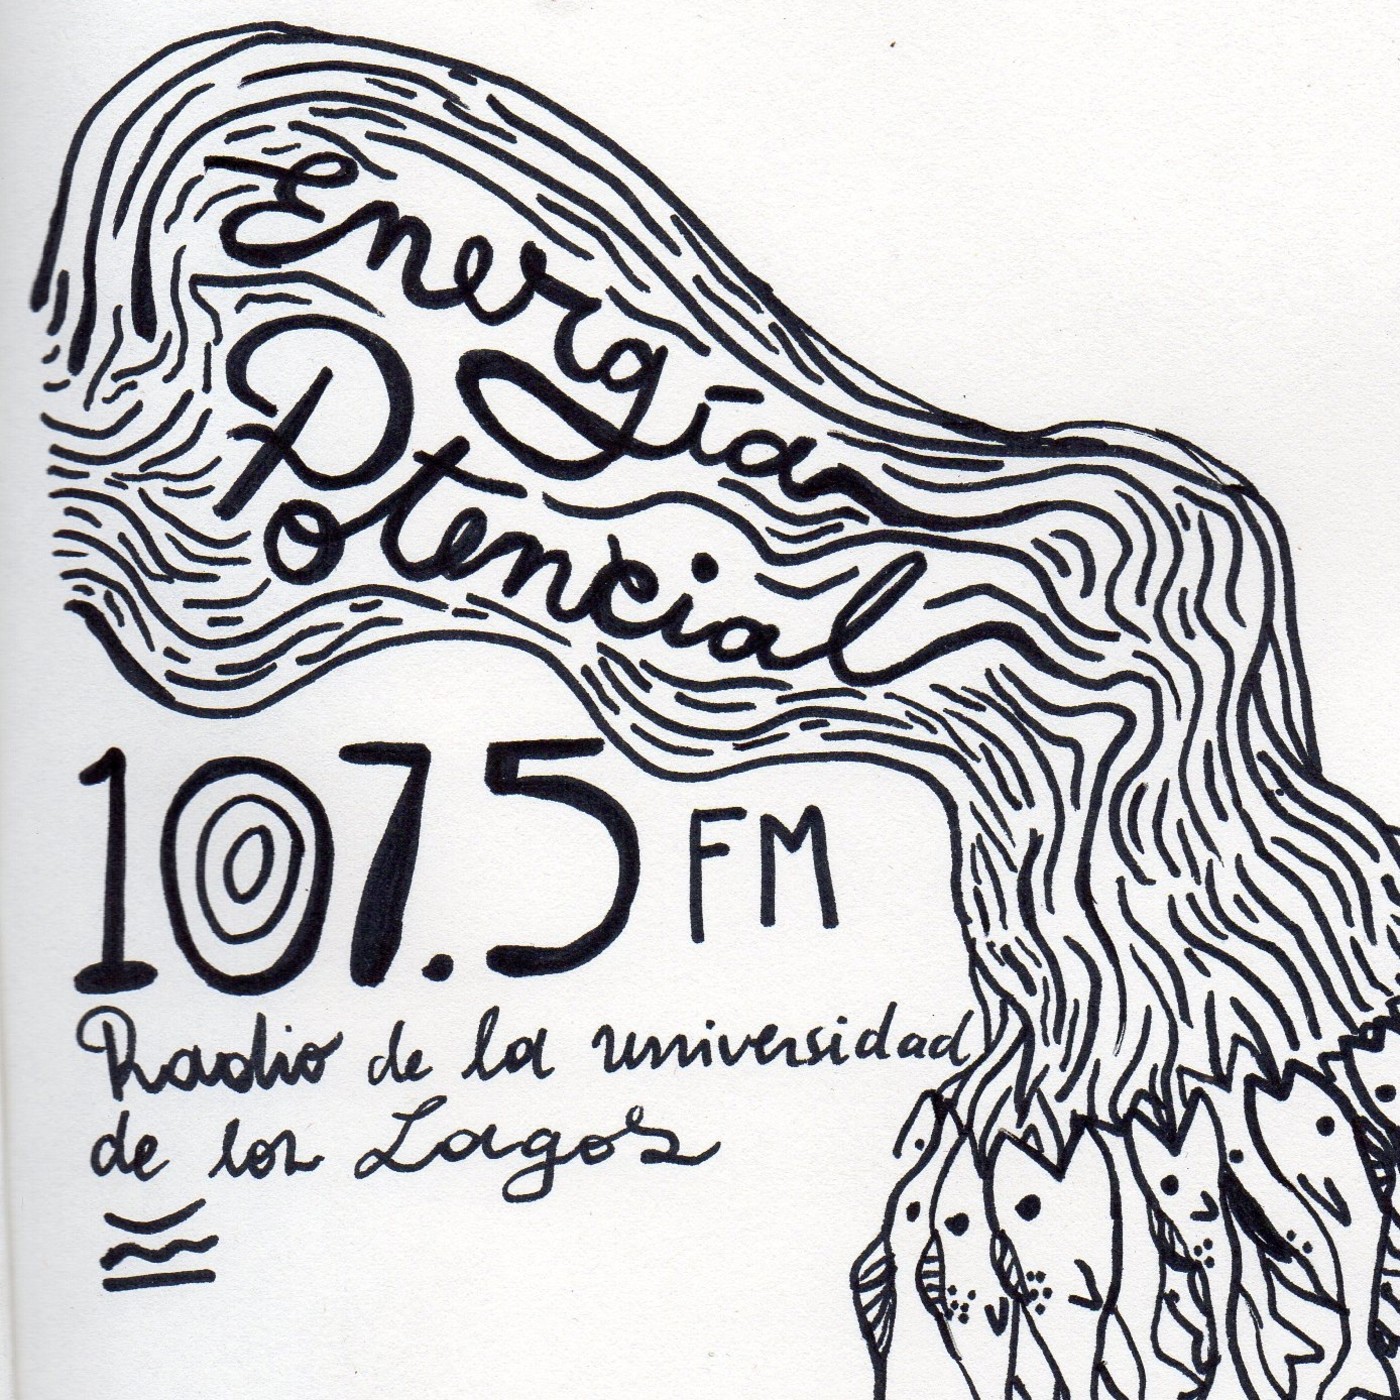 Energía
Potencial
107.5 FM
Radio de la universidad
de los Lagos